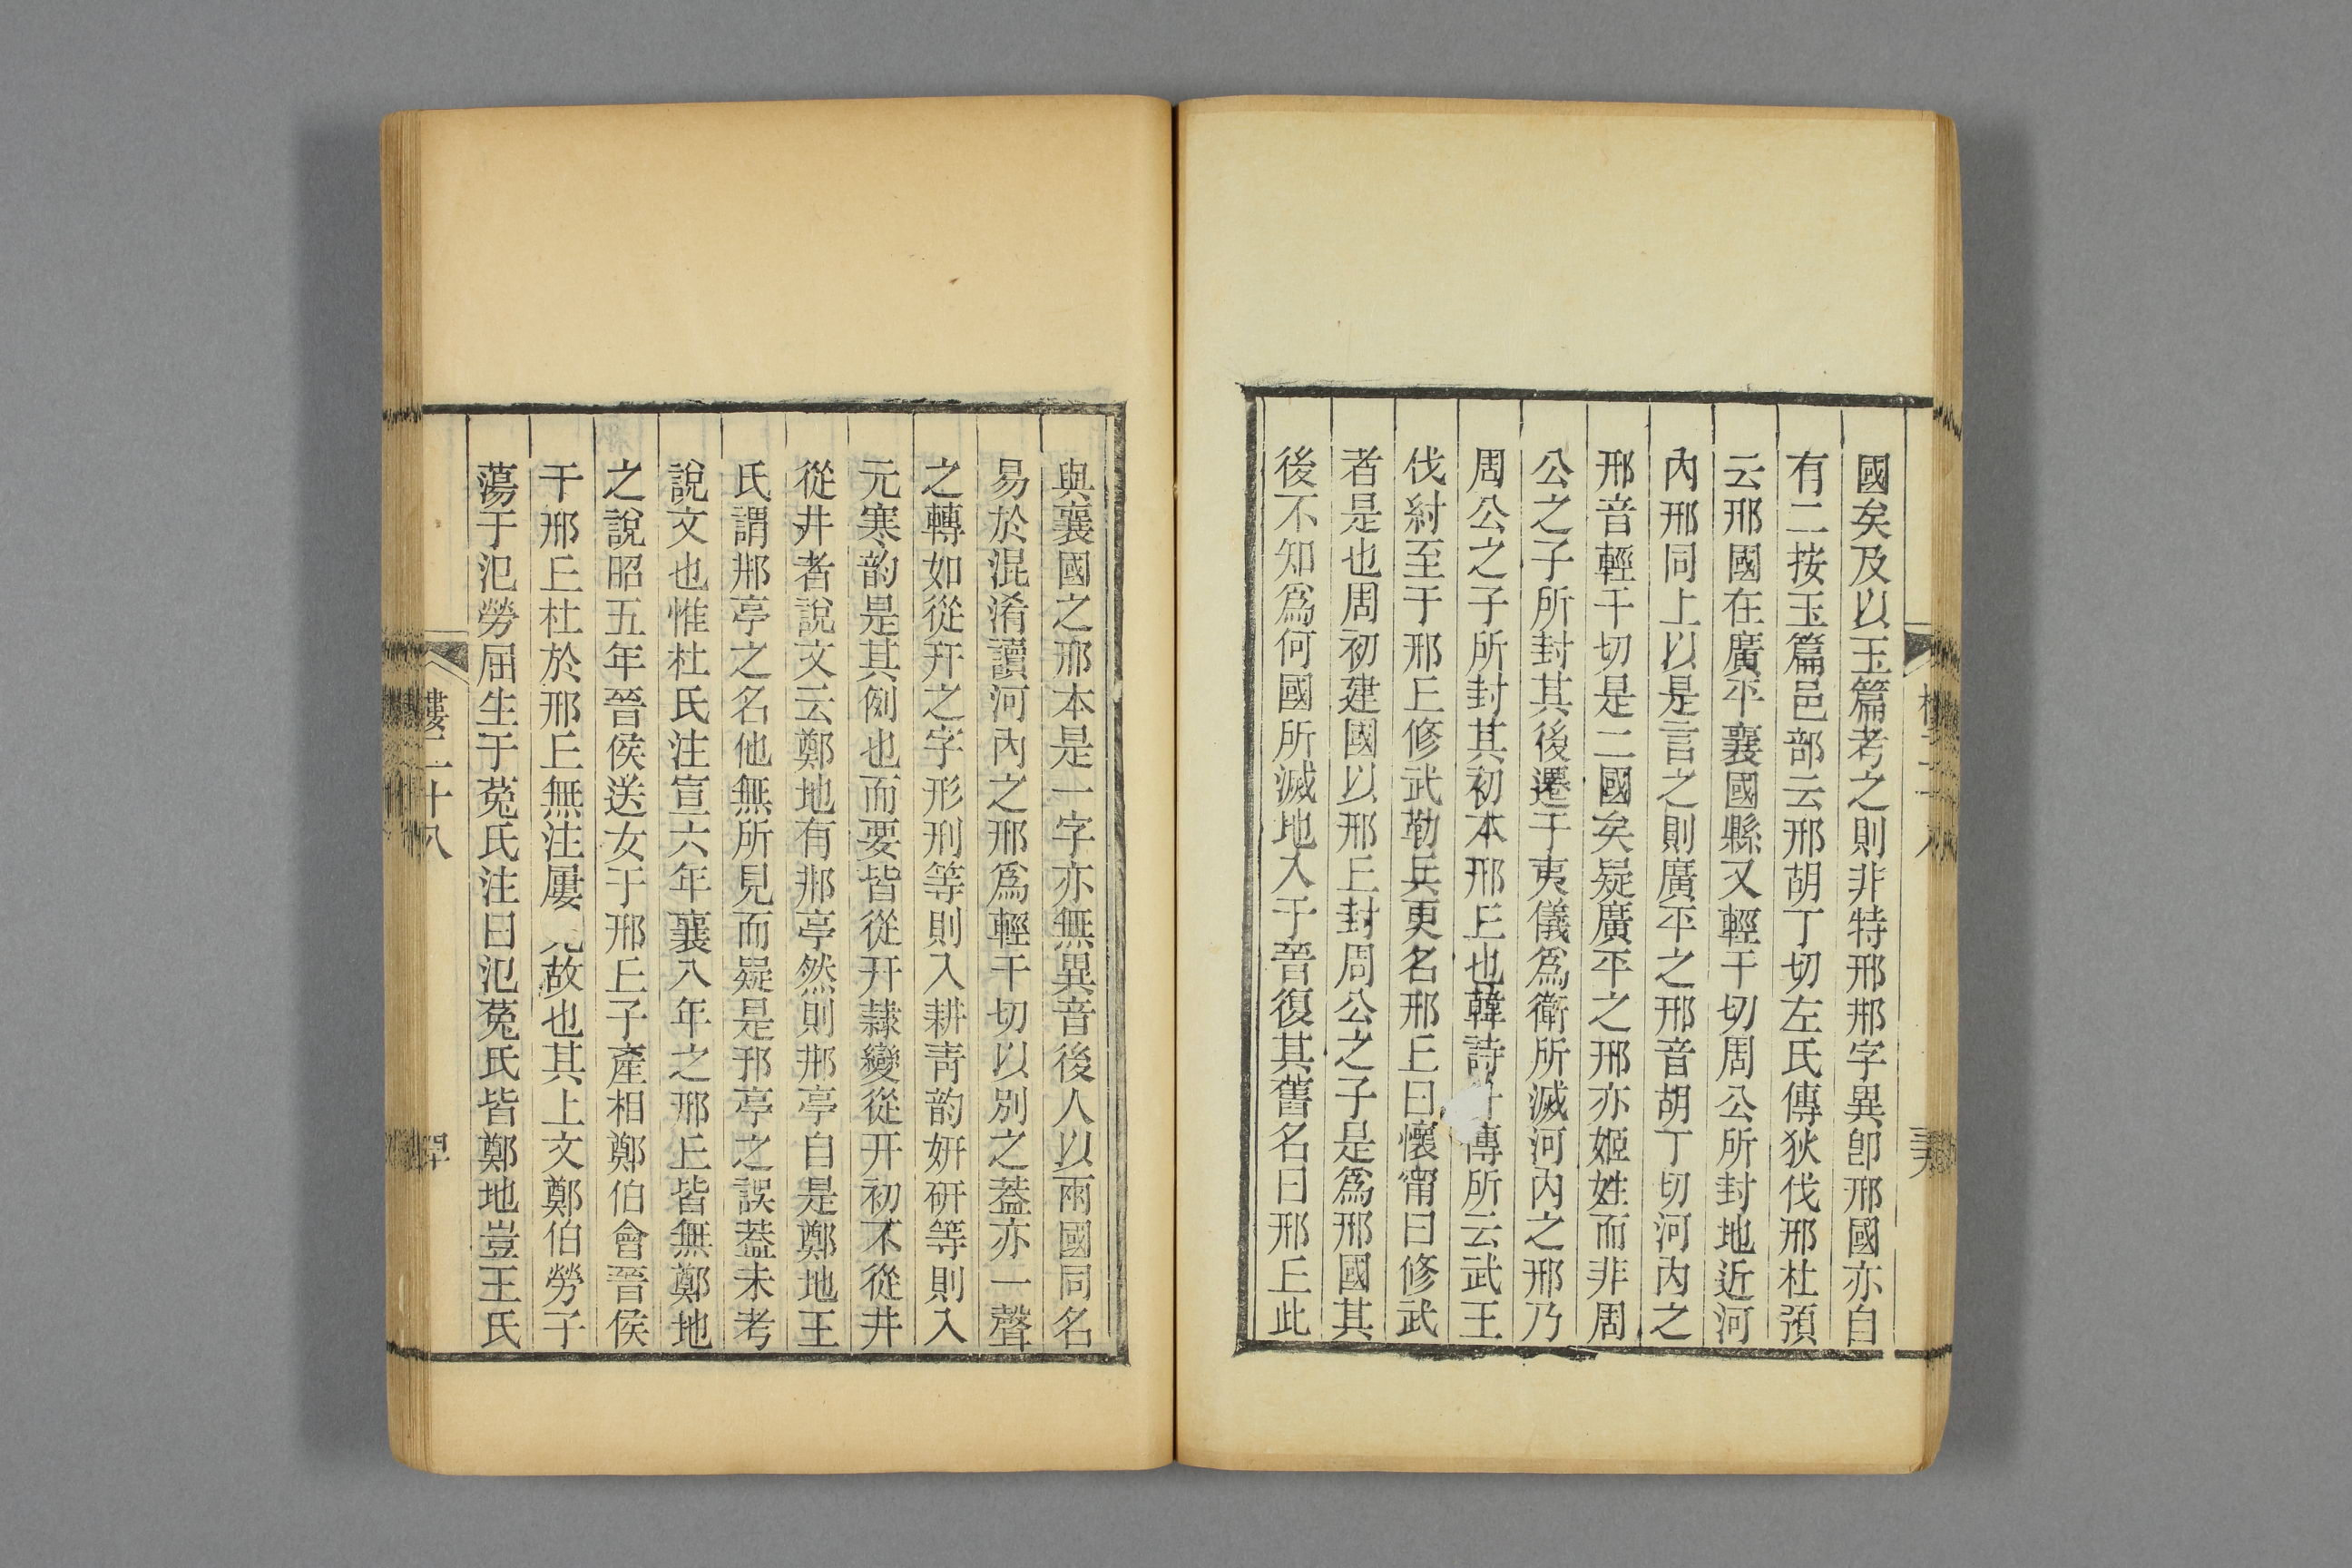 國矣及以玉篇考之則非特邢郱字異卽邢國亦自
有二按玉篇邑部云邢胡丁切左氏傳狄伐邢杜預
云邢國在廣平襄國縣又輕干切周公所封地近河
內邢同上以是言之則廣平之邢音胡丁切河內之
邢音輕干切是二國矣疑廣平之邢亦姬姓而非周
公之子所封其後遷于夷儀爲衛所滅河內之邢乃
周公之子所封其初本邢丘也韓詩傳所云武王
伐紂至于邢丘修武勒兵更名邢丘曰懷甯曰修武
者是也周初建國以邢丘封周公之子是爲邢國其
後不知爲何國所滅地入于晉復其舊名曰邢丘此
與襄國之邢本是一字亦無異音後人以兩國同名
易於混淆讀河內之邢爲輕干切以別之蓋亦一聲
之轉如從幵之字形刑等則入耕靑韵妍研等則入
元寒韵是其例也而要皆從幵隸變從开初不從井
從井者說文云鄭地有郱亭然則郱亭自是鄭地王
氏謂郱亭之名他無所見而疑是邘亭之誤蓋未考
說文也惟杜氏注宣六年襄八年之邢丘皆無鄭地
之說昭五年晉侯送女于邢丘子產相鄭伯會晉侯
于邢丘杜於邢丘無注屢見故也其上文鄭伯勞子
蕩于氾勞屈生于菟氏注曰氾菟氏皆鄭地豈王氏
樓二十八